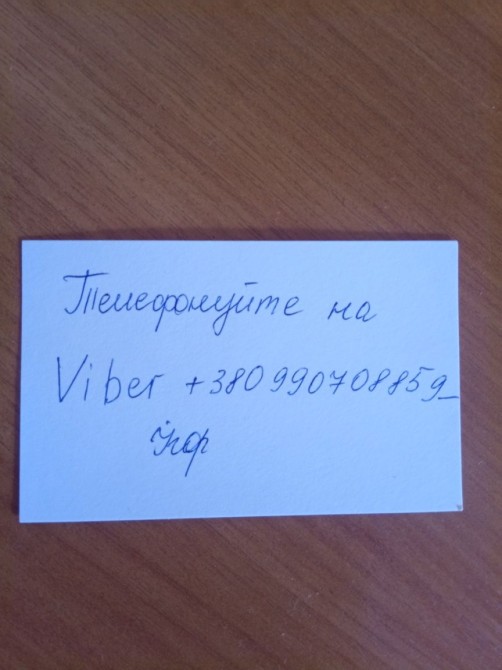 Телефонуйте на
Viber +380990708859_
Ігор